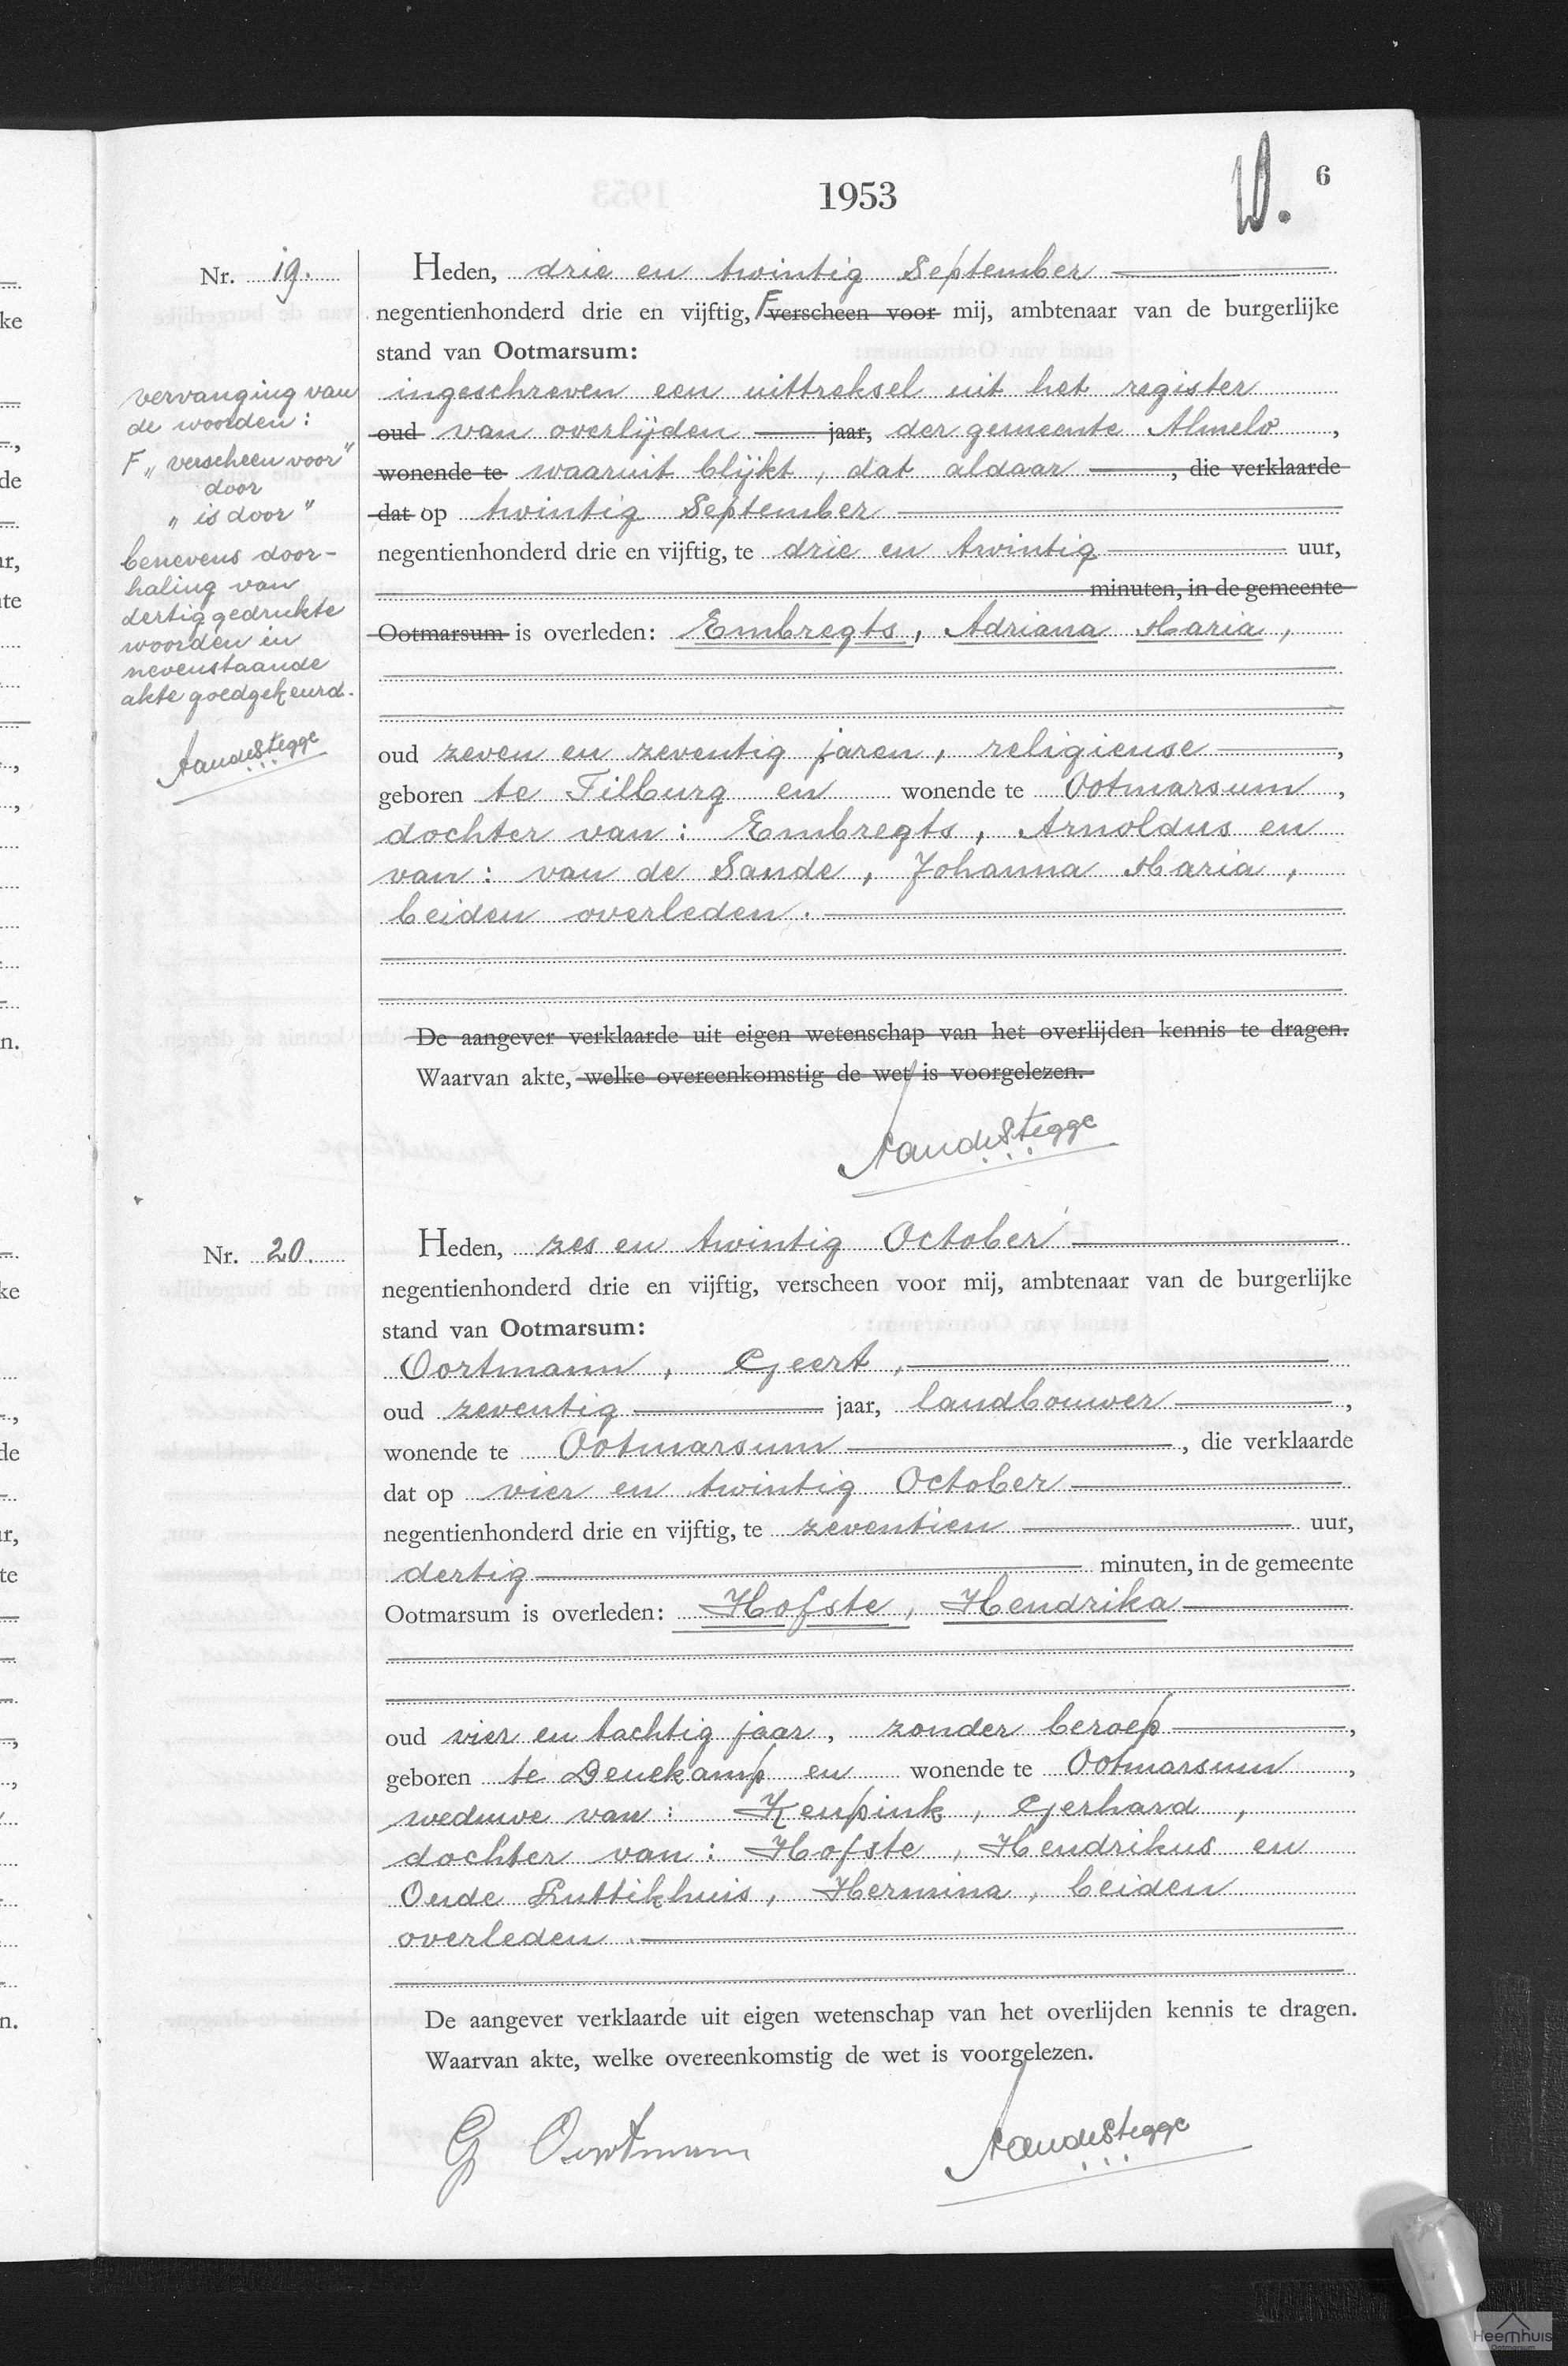 1953
6
Nr. 19.
Heden, drie en twintig September
negentienhonderd drie en vijftig, F verscheen voor mij, ambtenaar van de burgerlijke
stand van Ootmarsum:
ingeschreven een uittreksel uit het register
oud van overlijden jaar, der gemeente Almelo,
wonende te waaruit blijkt, dat aldaar, die verklaarde
dat op twintig September
negentienhonderd drie en vijftig, te drie en twintig uur,
minuten, in de gemeente
Ootmarsum is overleden: Embregts, Adriana Maria,
oud zeven en zeventig jaren, religieuse,
geboren te Tilburg en wonende te Ootmarsum,
dochter van: Embregts, Arnoldus en
van: van de Sande, Johanna Maria,
beiden overleden.
De aangever verklaarde uit eigen wetenschap van het overlijden kennis te dragen.
Waarvan akte, welke overeenkomstig de wet is voorgelezen.
vervanging van
de woorden:
F „verscheen voor"
door
„is door"
benevens door-
haling van
dertig gedrukte
woorden in
nevenstaande
akte goedgekeurd.
Nr. 20.
Heden, zes en twintig October
negentienhonderd drie en vijftig, verscheen voor mij, ambtenaar van de burgerlijke
stand van Ootmarsum:
Oortmann, Geert,
oud zeventig jaar, landbouwer,
wonende te Ootmarsum, die verklaarde
dat op vier en twintig October
negentienhonderd drie en vijftig, te zeventien uur,
dertig minuten, in de gemeente
Ootmarsum is overleden: Hofste, Hendrika
oud vier en tachtig jaar, zonder beroep,
geboren te Denekamp en wonende te Ootmarsum,
weduwe van: Keupink, Gerhard,
dochter van: Hofste, Hendrikus en
Oude Luttikhuis, Hermina, beiden
overleden.
De aangever verklaarde uit eigen wetenschap van het overlijden kennis te dragen.
Waarvan akte, welke overeenkomstig de wet is voorgelezen.
G Oortmann
Heemhuis
Ootmarsum